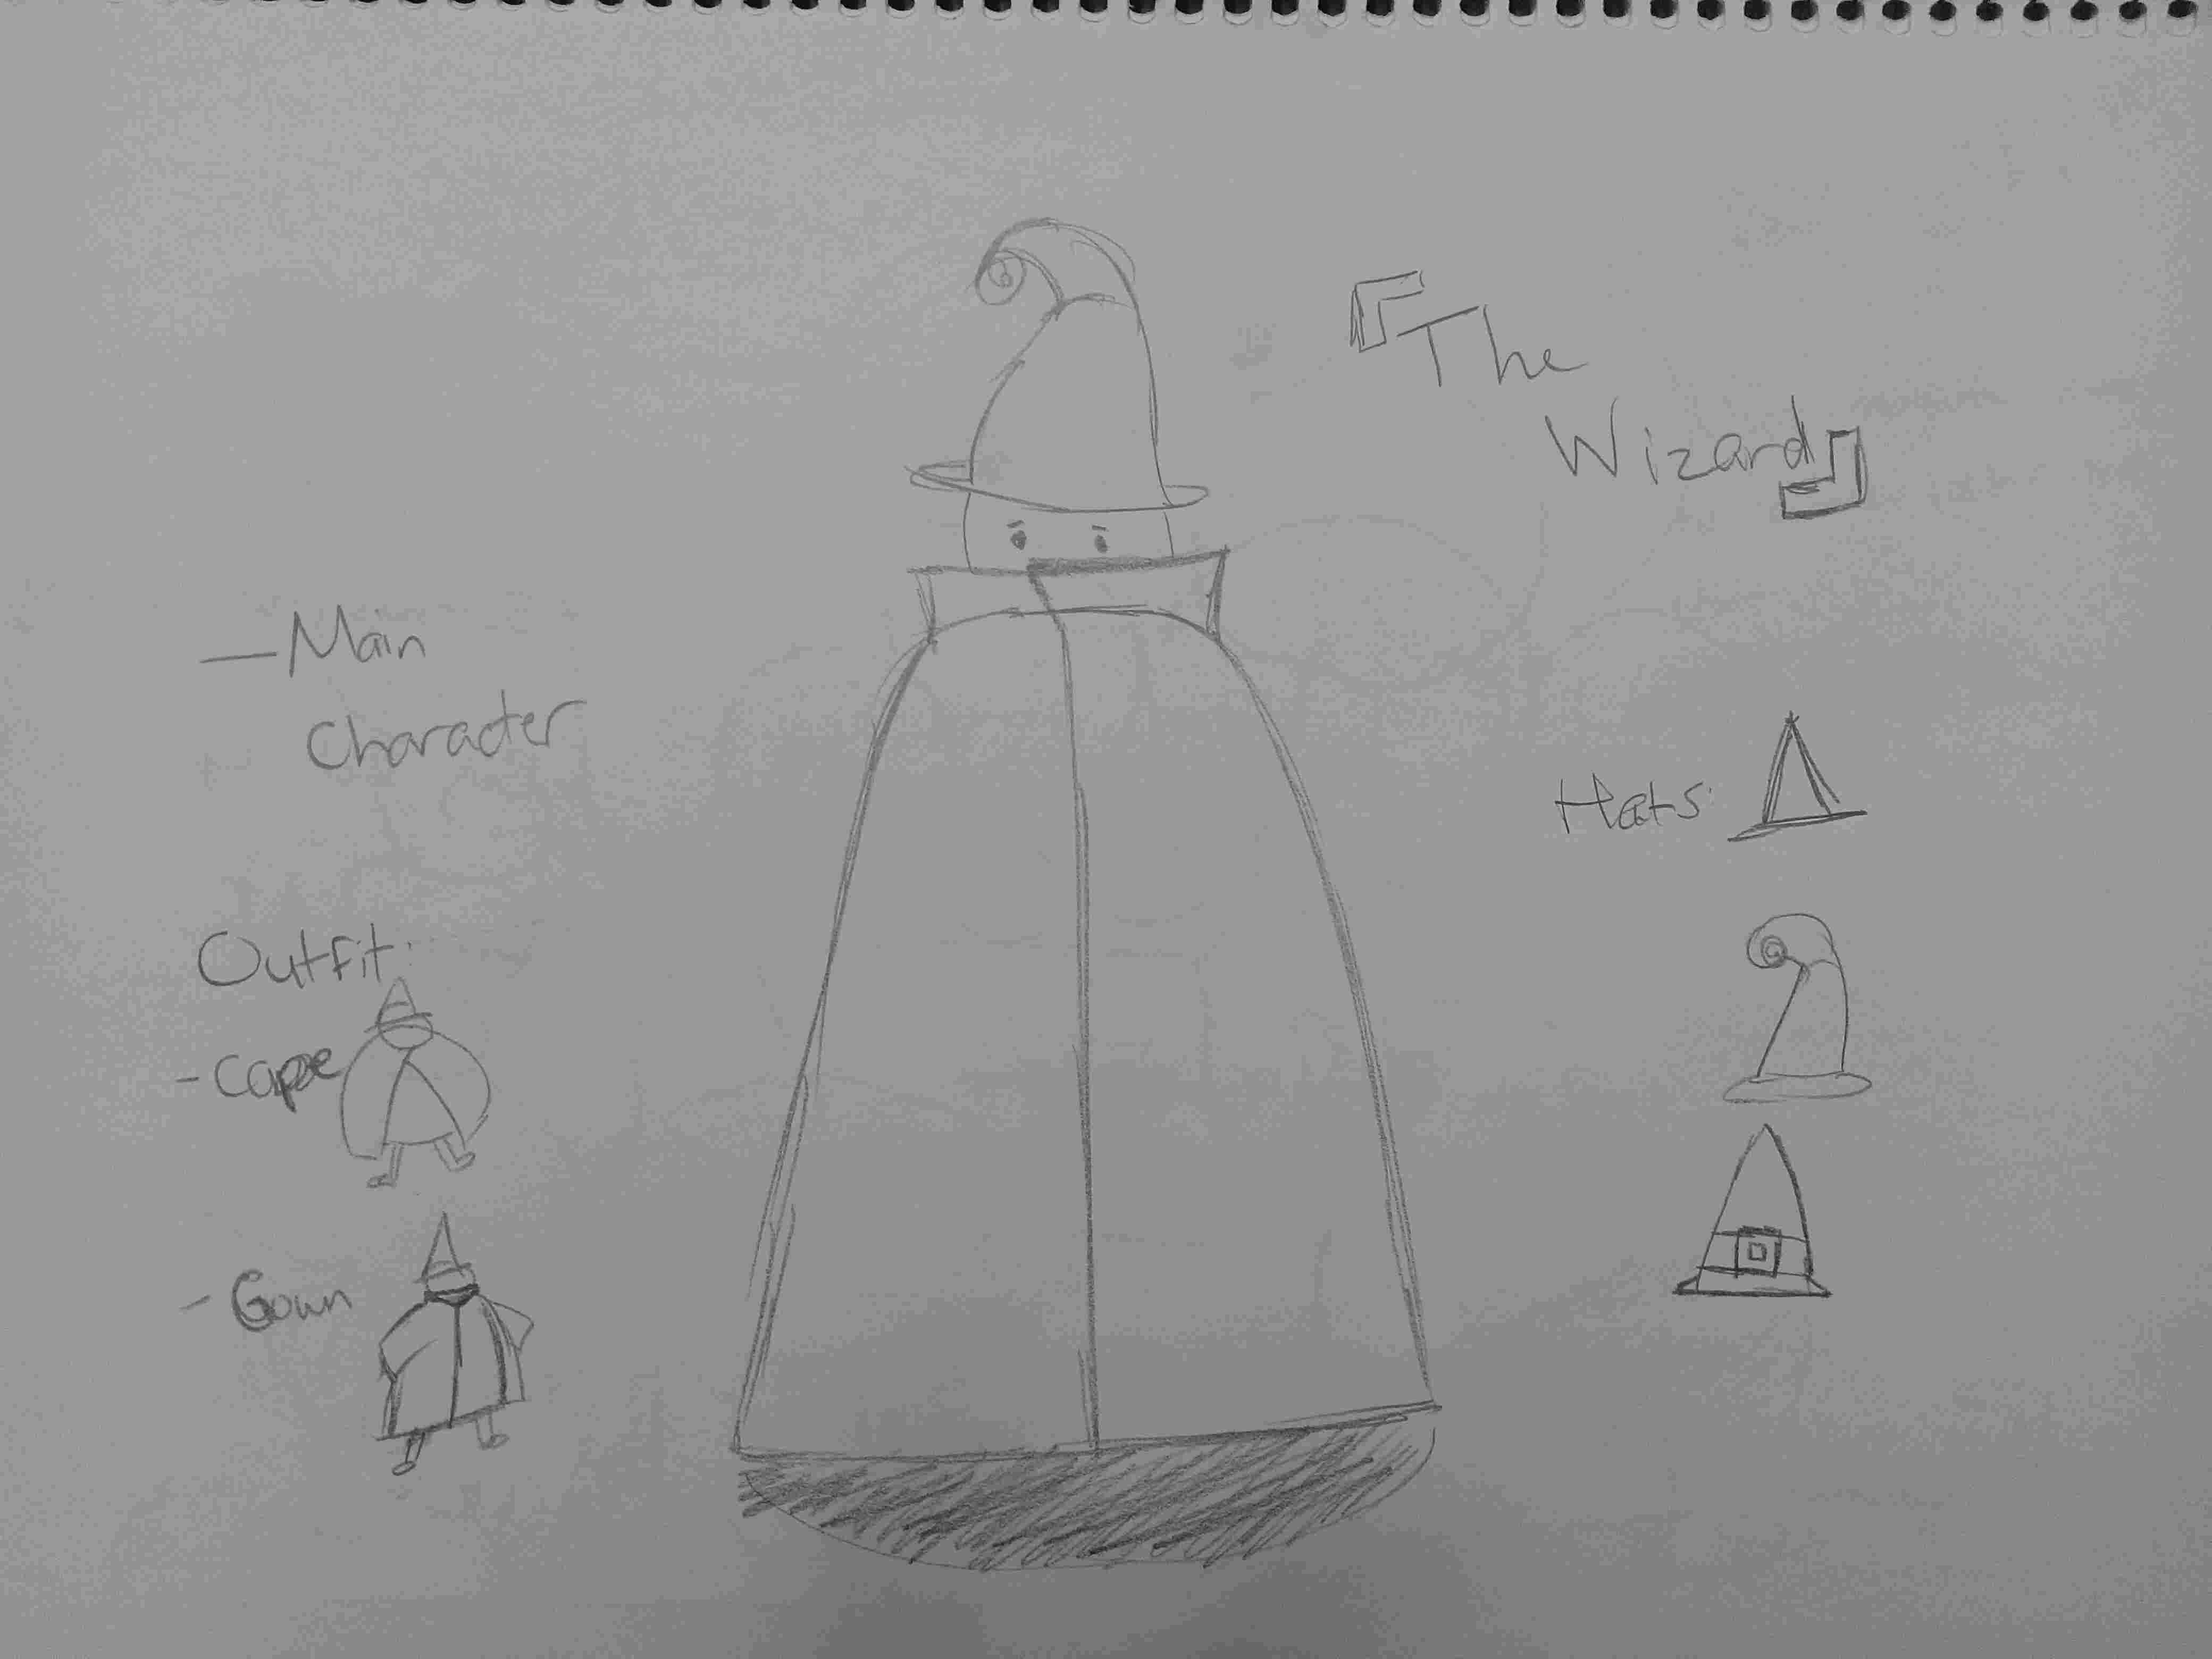 『The
Wizard』
— Main
Character
Hats:
Outfit:
- Cape
- Gown